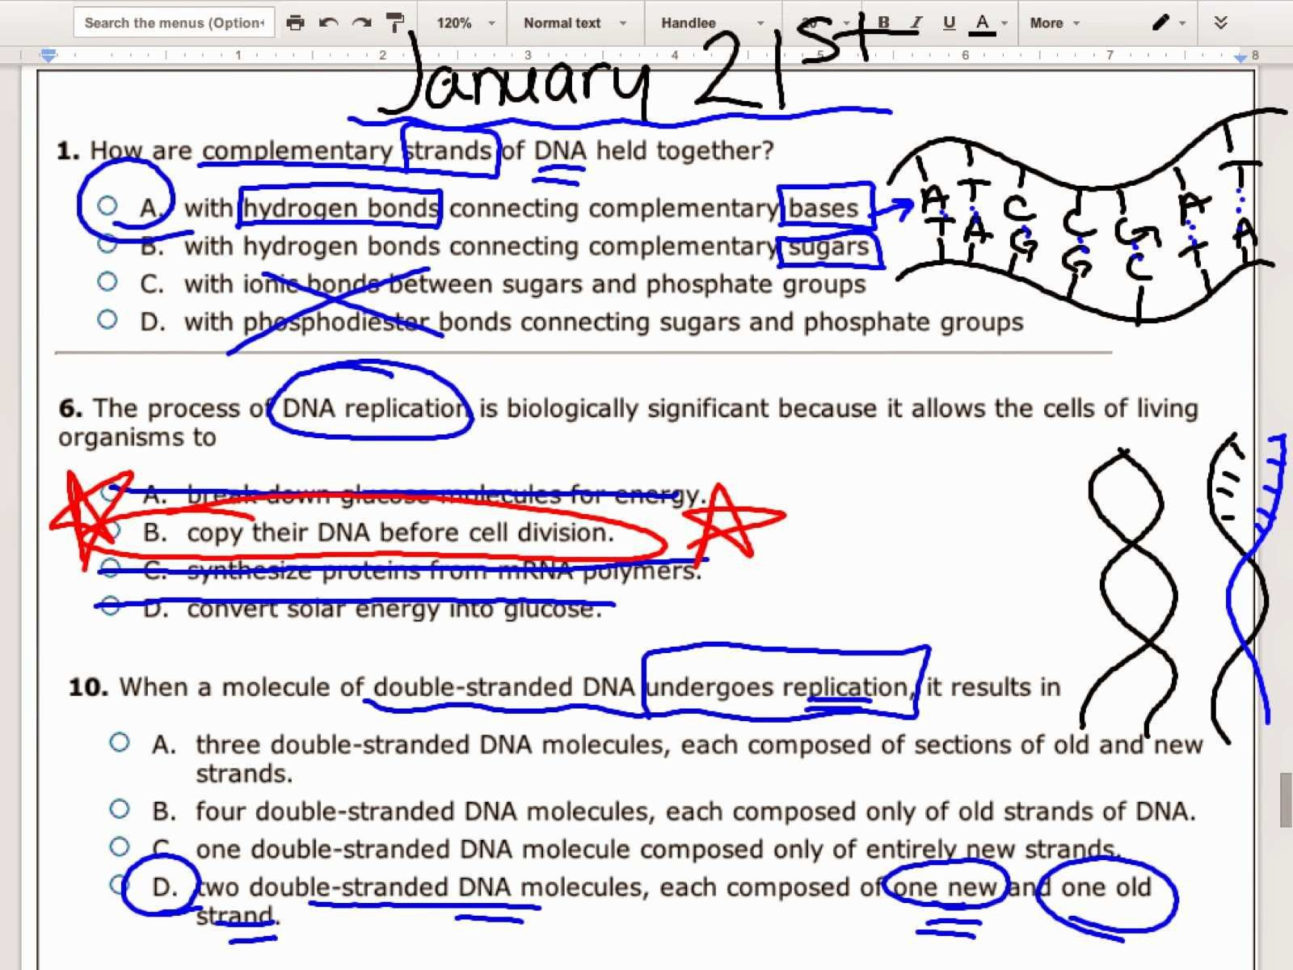 Search the menus (Option+
120%
Normal text
Handlee
B I U A
More
1 2 3 4 5 6 7 8
January 21st
1. How are complementary strands of DNA held together?
A. with hydrogen bonds connecting complementary bases
B. with hydrogen bonds connecting complementary sugars
C. with ionic bonds between sugars and phosphate groups
D. with phosphodiester bonds connecting sugars and phosphate groups
A T C C G A T
T A G G C T A
6. The process of DNA replication is biologically significant because it allows the cells of living
organisms to
A. break down glucose molecules for energy.
B. copy their DNA before cell division.
C. synthesize proteins from mRNA polymers.
D. convert solar energy into glucose.
10. When a molecule of double-stranded DNA undergoes replication, it results in
A. three double-stranded DNA molecules, each composed of sections of old and new
strands.
B. four double-stranded DNA molecules, each composed only of old strands of DNA.
C. one double-stranded DNA molecule composed only of entirely new strands.
D. two double-stranded DNA molecules, each composed of one new and one old
strand.